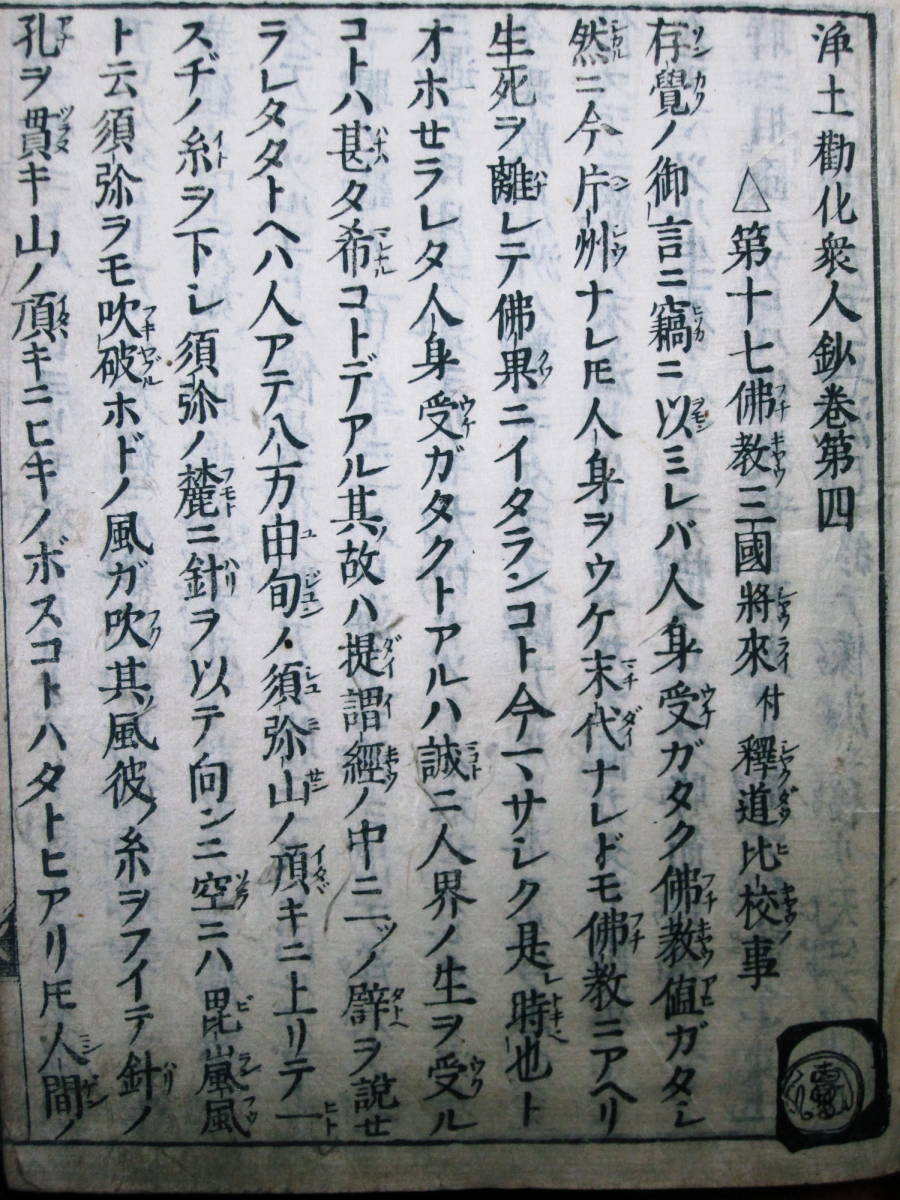 浄土勸化衆人鈔巻第四
△第十七佛教三國將來 付 釋道比校事
存覺ノ御言ニ竊ニ以ミレバ人身受ガタク佛教値ガタシ
然ニ今片州ナレ𪜈人身ヲウケ末代ナレドモ佛教ニアヘリ
生死ヲ離レテ佛果ニイタランコト今マサシク是時也ト
オホセラレタ人身受ガタクトアルハ誠ニ人界ノ生ヲ受ル
コトハ甚タ希コトデアル其故ハ提謂經ノ中ニ一ツノ譬ヲ說セ
ラレタタトヘハ人アテ八万由旬ノ須弥山ノ頂キニ上リテ一
スヂノ糸ヲ下シ須弥ノ麓ニ針ヲ以テ向ンニ空ニハ毘嵐風
ト云須弥ヲモ吹破ホドノ風ガ吹其風彼ノ糸ヲフイテ針ノ
孔ヲ貫キ山ノ頂キニヒキノボスコトハタトヒアリ𪜈人間ノ